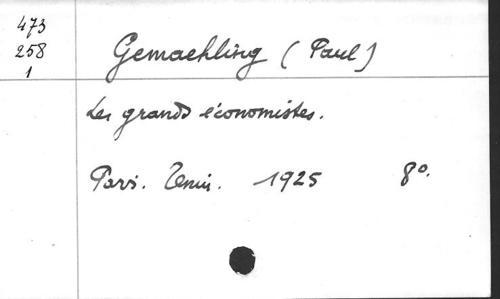 473
258
1
Gemaehling (Paul)
Les grands économistes.
Paris. 1925 8°.